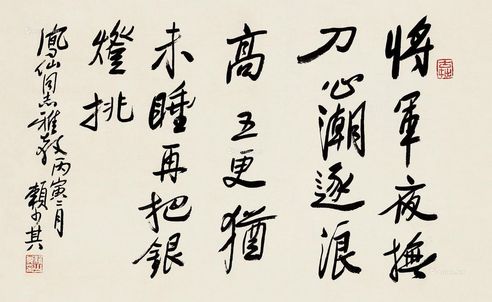 將軍夜撫
刀心潮逐浪
高五更猶
未睡再把銀
燈挑
鳳仙同志雅教丙寅二月
賴少其